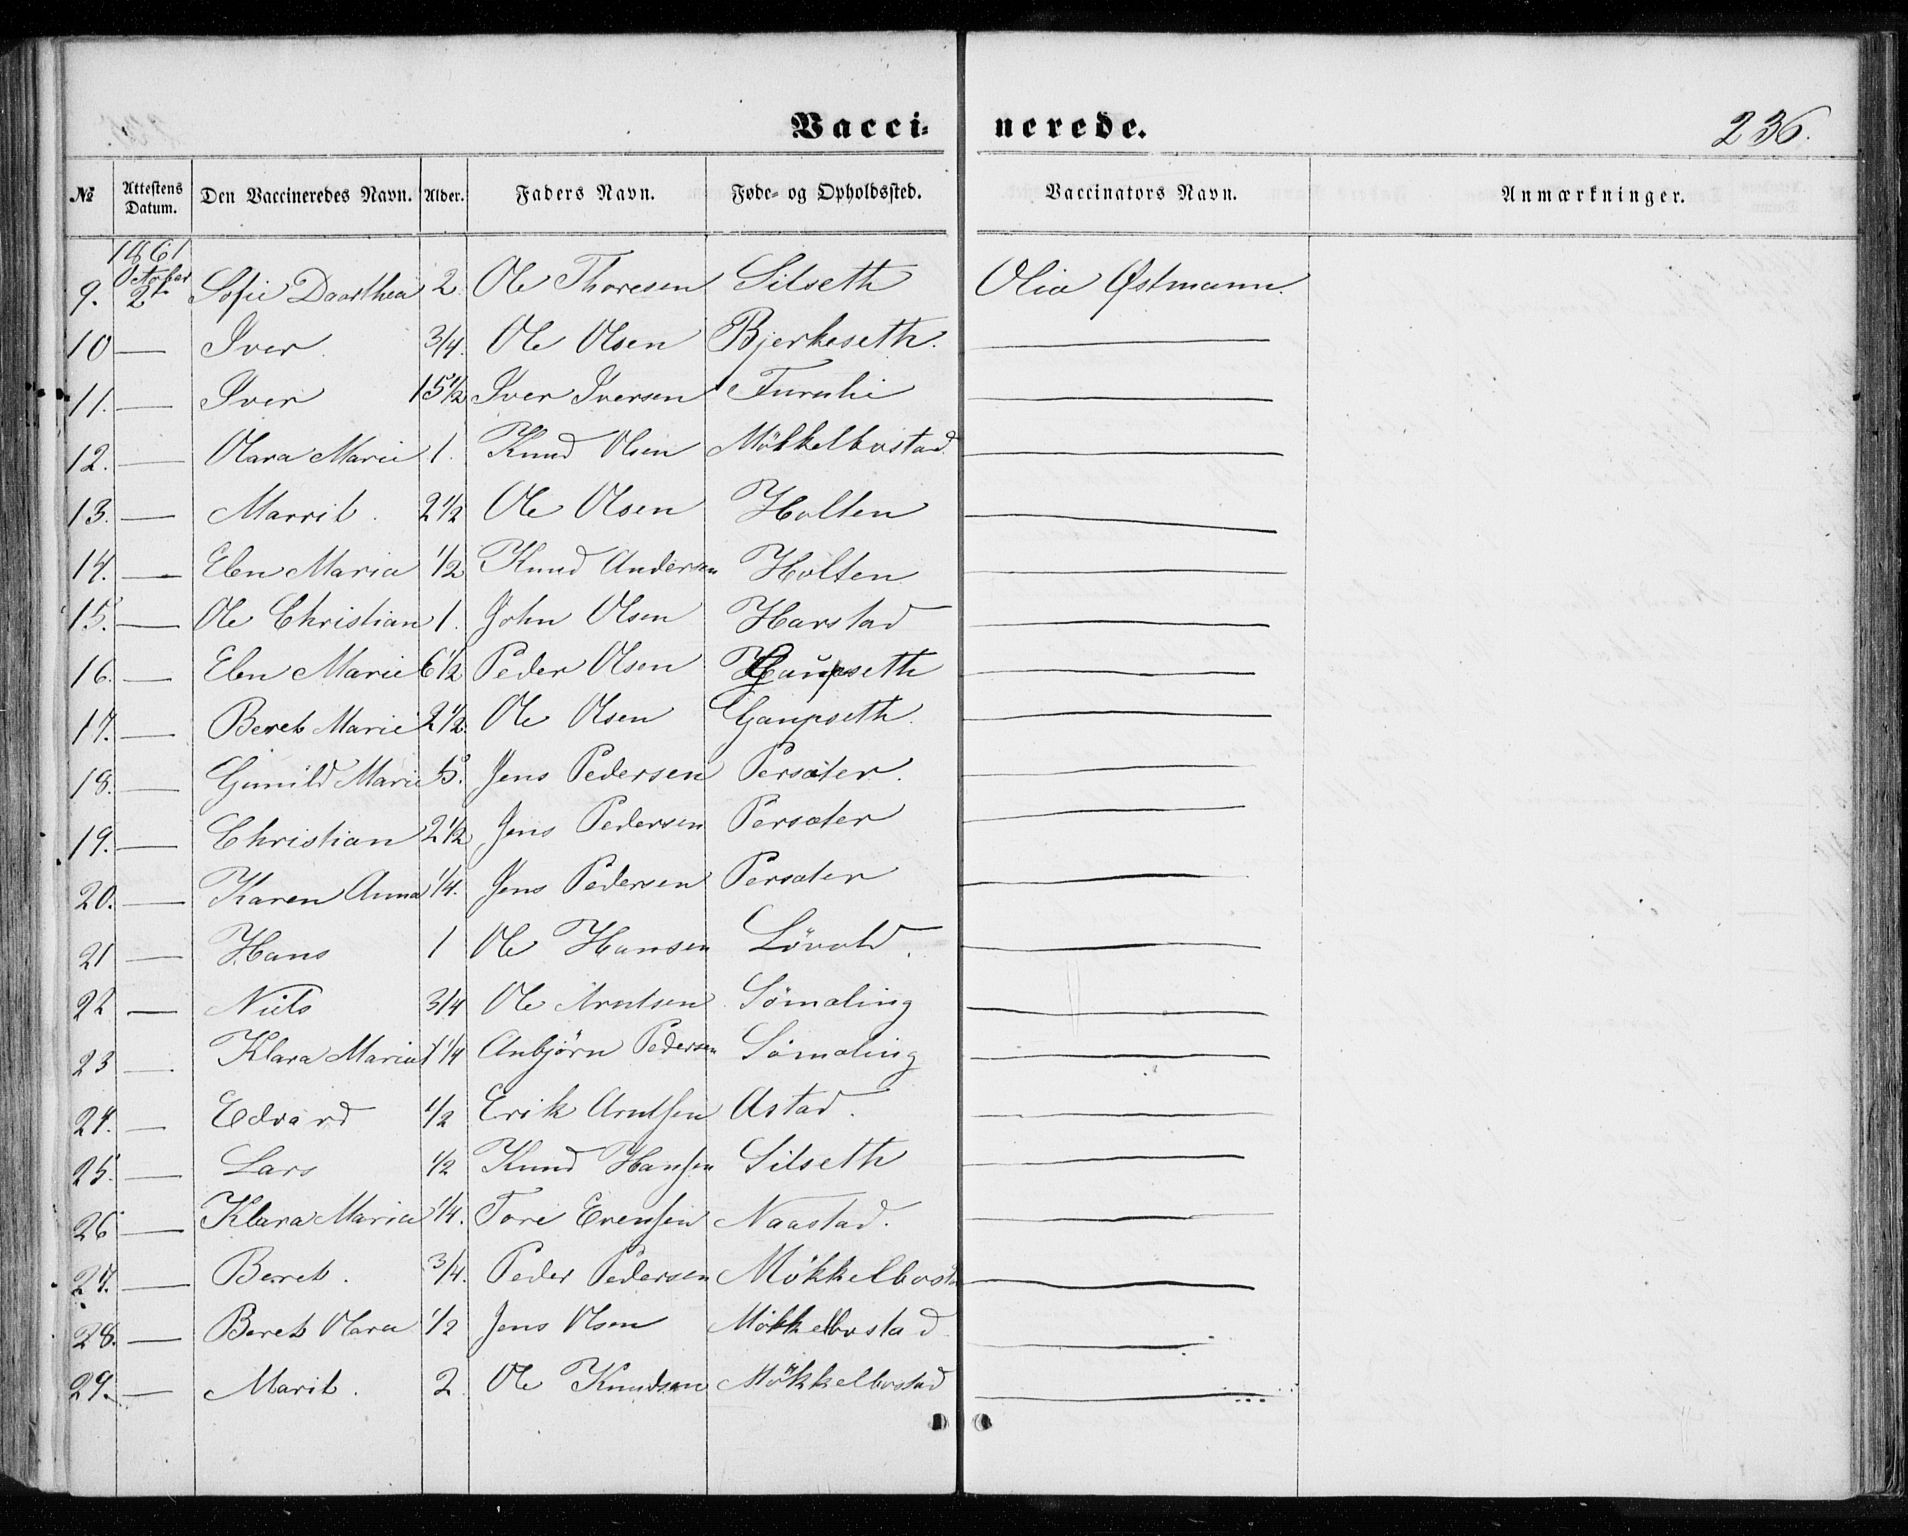 Vaccinerede.
236.
№ Attestens Datum. Den Vaccineredes Navn. Alder. Faders Navn. Føde- og Opholdssted. Vaccinators Navn. Anmærkninger.
1861
October
9. 2 Sofie Daarthea 2. Ole Thoresen Silseth Olia Østmann.
10 — Iver 3/4. Ole Olsen Bjerkeseth. —
11. — Iver 15 1/2 Iver Iversen Furulie —
12. — Olara Marie 1. Knud Olsen Mökkelbostad —
13. — Marrit. 2 1/2 Ole Olsen Holten —
14. — Elen Maria 1/2 Knud Andersen Holten —
15. — Ole Christian 1. John Olsen Harstad —
16. — Elen Marie 6 1/2 Peder Olsen Gaupseth —
17. — Beret Marie 2 1/2. Ole Olsen Gaupseth. —
18. — Gunild Marie 5. Jens Pedersen Persæter. —
19. — Christian 2 1/2 Jens Pedersen Persæter —
20. — Karen Anna 1/4. Jens Pedersen Persæter —
21 — Hans 1 Ole Hansen Lövold. —
22 — Niels 3/4 Ole Arntsen Sömæling —
23 — Klara Maria 1 1/4 Anbjörn Pedersen Sömæling —
24. — Edvard 1/2 Erik Arntsen Astad. —
25. — Lars 1/2 Knud Hansen Silseth —
26 — Klara Maria 1/4. Tore Evensen Naastad. —
27. — Beret. 3/4. Peder Pedersen Mökkelbost —
28. — Beret Olara 1/2 Jens Olsen Mökkelbostad —
29. — Marit. 2. Ole Knudsen Mökkelbostad —